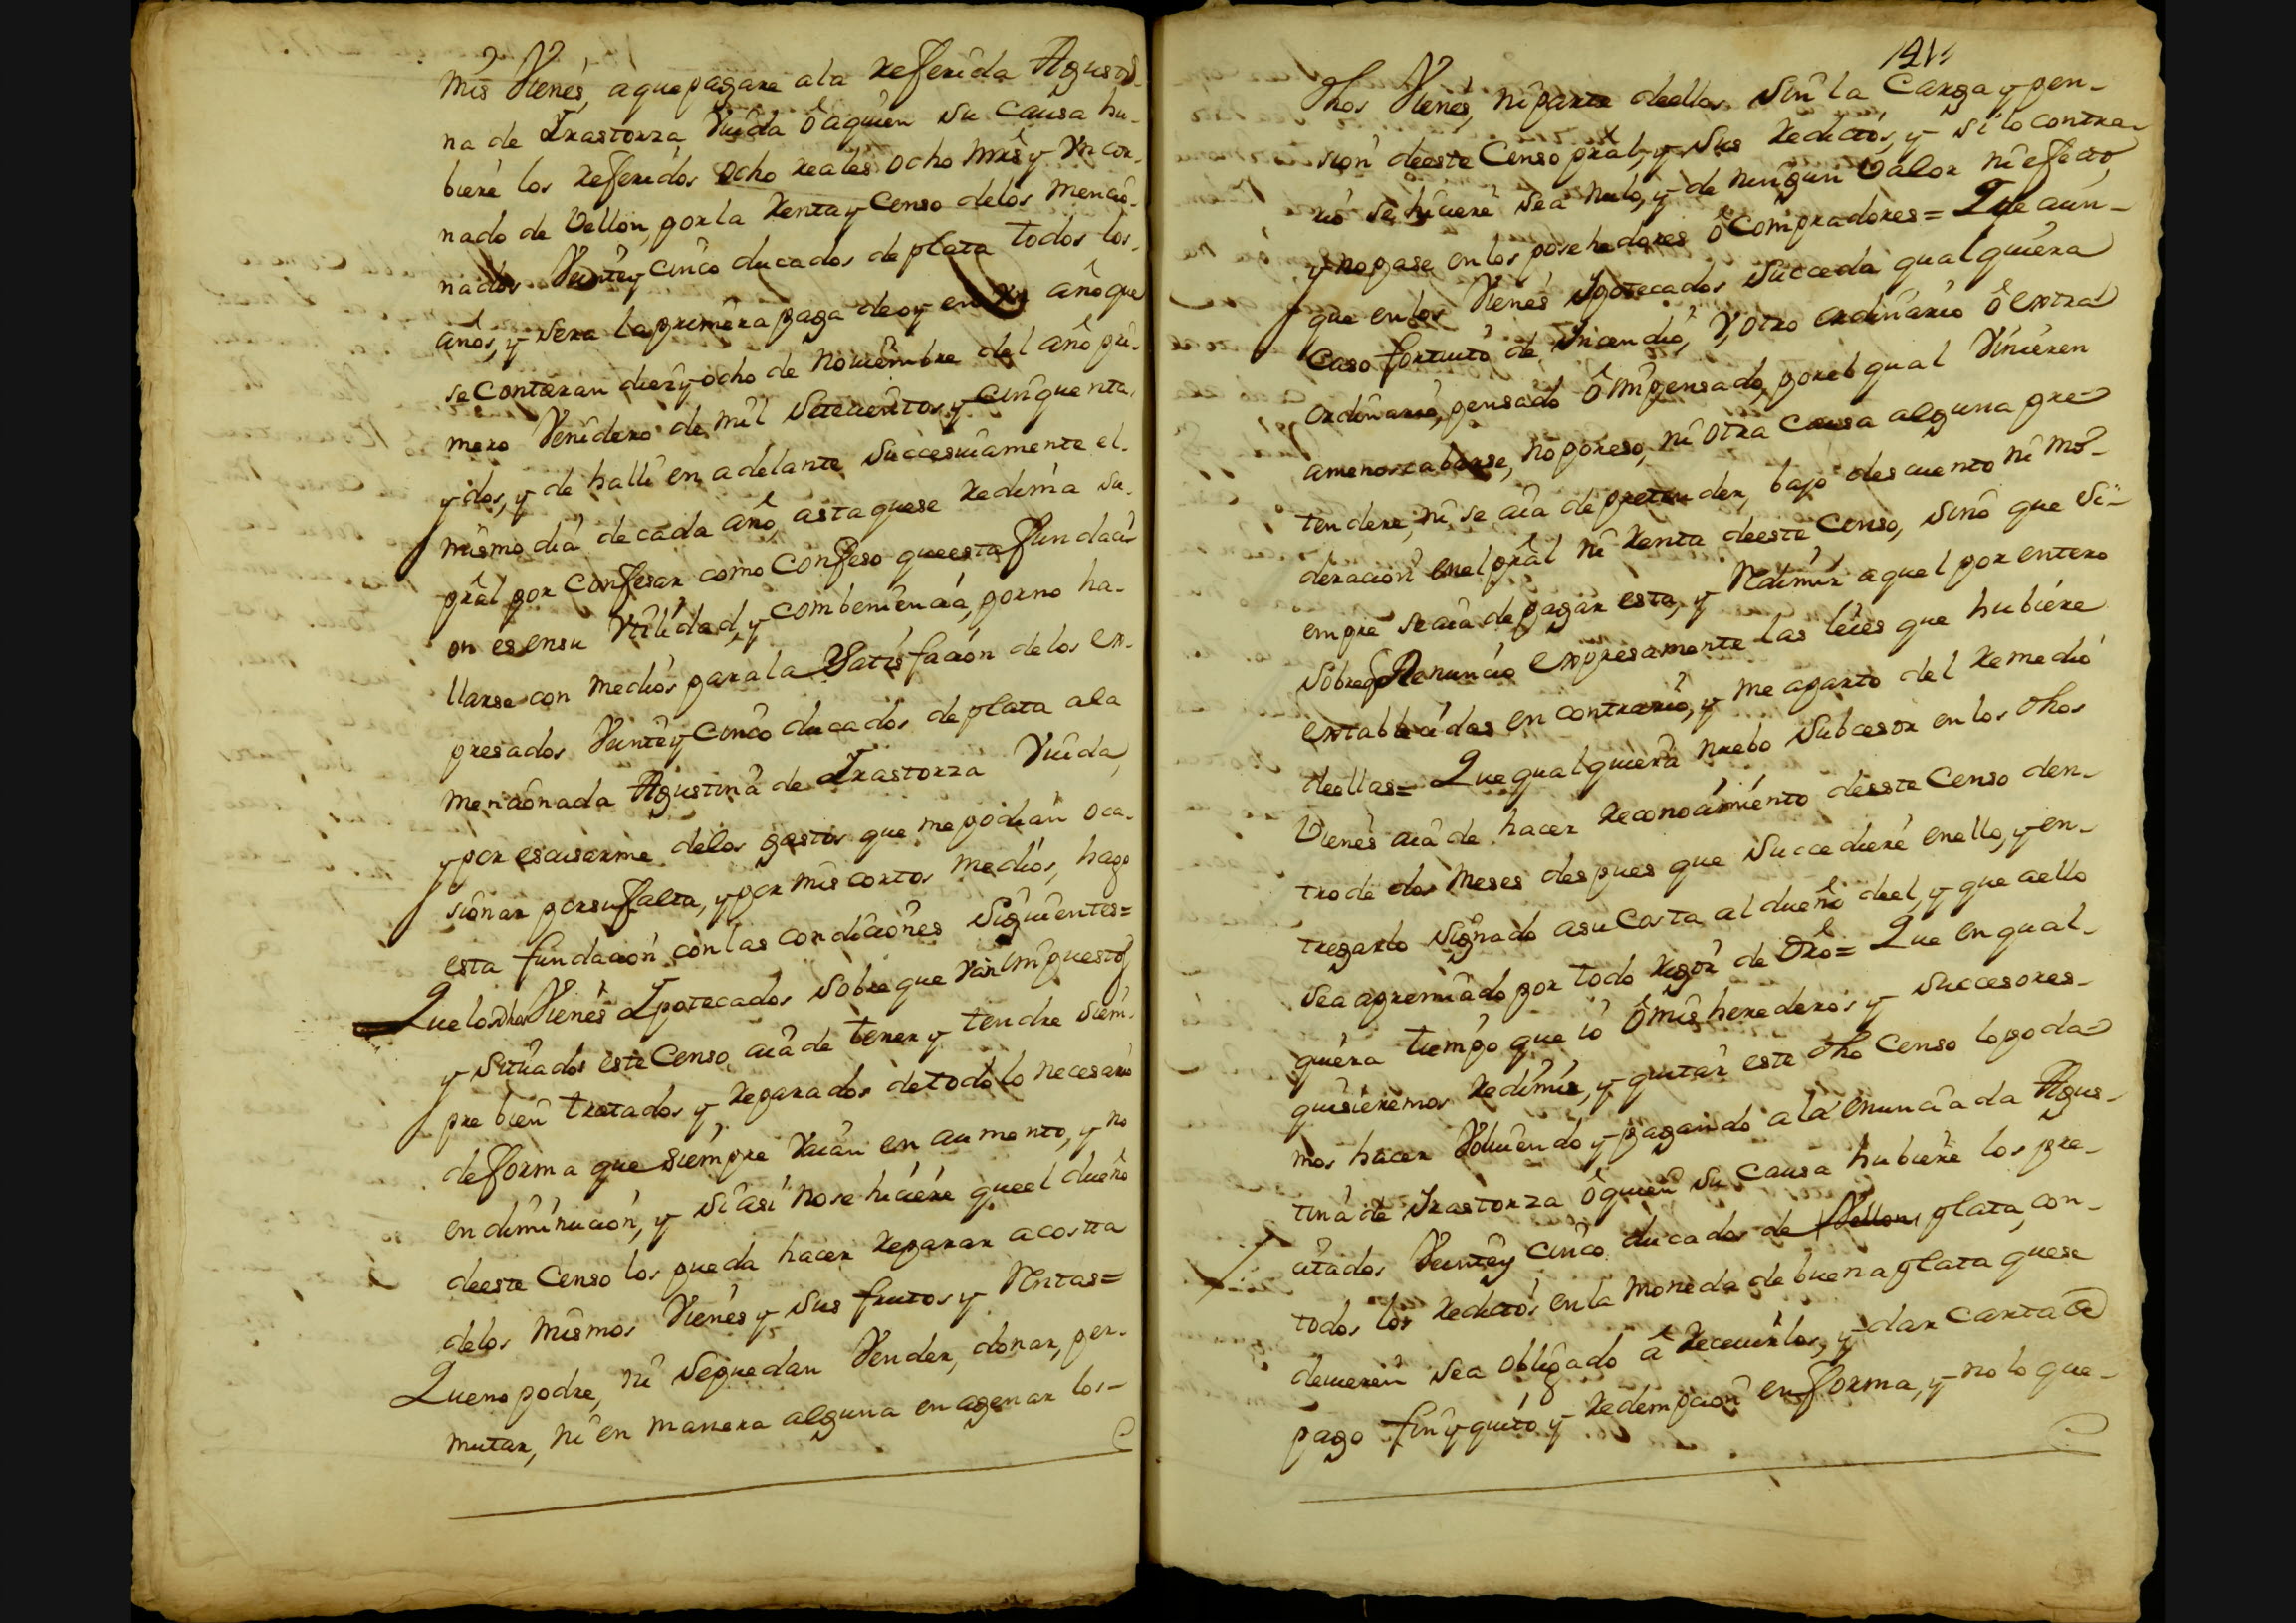 mis Vienes, aque pagare ala referida Agusti-
na de Irastorza Viuda ô aquien su causa hu-
biere los referidos ocho reales ocho mrs y Un cor-
nado de Vellon, por la renta y Censo delos mencio-
nados Veinte y cinco ducados de plata todos los
años, y sera la primera paga de oy en Un año que
se contaran diez y ocho de Noviembre del año pri-
mero Venidero de mil setecientos y cinquenta
y dos, y de halli en adelante succesivamente el
mismo dia de cada año, asta quese redima su
prâl por confesar como confeso que esta fundaci-
on es en su Utilidad, y combeniencia, por no ha-
llarse con medios para la Satisfacion delos ex-
presados Veinte y cinco ducados de plata ala
mencionada Agustina de Irastorza Viuda,
y por escusarme delos gastos que me podian oca-
sionar por su falta, y por mis cortos medios, hago
esta fundacion con las condiciones siguientes=
Que los dhos Vienes Ipotecados sobre que van impuesto
y situado este Censo, aia de tener y tendre siem-
pre bien tratados y reparados de todo lo necesario
de forma que siempre Vaian en aumento, y no
en diminucion, y si asi no se hiciere que el dueño
deeste Censo los pueda hacer reparar a costa
delos mismos Vienes y sus frutos y Rentas=
Que no podre, ni se puedan Vender, donar, per-
mutar, ni en manera alguna en agenar los
141
dhos Vienes, ni parte deellos sin la Carga y pen-
sion deeste Censo prâl, y sus reditos, y si lo contra-
rio se hiciere sea nulo, y de ningun Valor ni efecto,
y no pase en los posehedores ô compradores= Que aun-
que en los Vienes Ipotecados succeda qualquiera
Caso fortuito de Incendio, Y otro ordinario ô extra
ordinario, pensado ô impensado, por el qual Vinieren
amenoscabarse, no por eso, ni otra causa alguna pre-
tendere, ni se aia de pretender, bajo descuento ni mo-
deracion en el prâl ni renta deeste Censo, sino que si-
empre se aia de pagar esta, y Redimir aquel por entero
sobre q Renuncio expresamente las leies que hubiere
establecidas en contrario, y me aparto del remedio
deellas= Que qualquiera nuebo subcesor en los dhos
Vienes aia de hacer reconocimiento deeste Censo den-
tro de dos meses despues que succediere en ello, y en-
tregarlo signado asu Costa al dueño deel, y que aello
sea apremiado por todo rigor de Dro= Que en qual-
quiera tiempo que io ô mis herederos y succesores
quisieremos redimir, y quitar este dho Censo lo poda-
mos hacer Volviendo y pagando ala enunciada Agus-
tina de Irastorza ô quien su causa hubiere los pre-
citados Veinte y cinco ducados de Vellon, plata, con
todos los reditos en la moneda de buena plata quese
devieren sea obligado â recevirlos, y dar carta de
pago fin y quito y redempcion en forma, y no lo que-